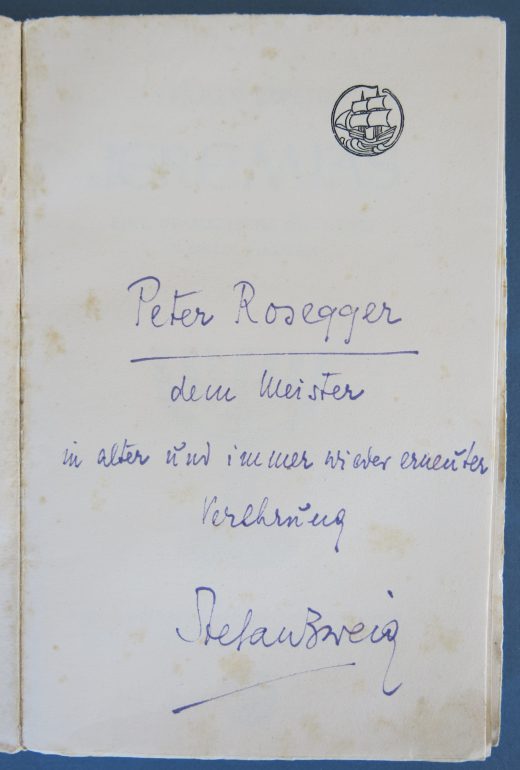 Peter Rosegger
dem Meister
in alter und immer wieder erneuter
Verehrung
Stefan Zweig